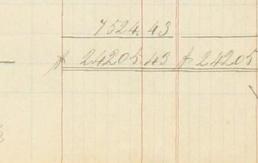 7524.43
$ 24205.43 $ 24205